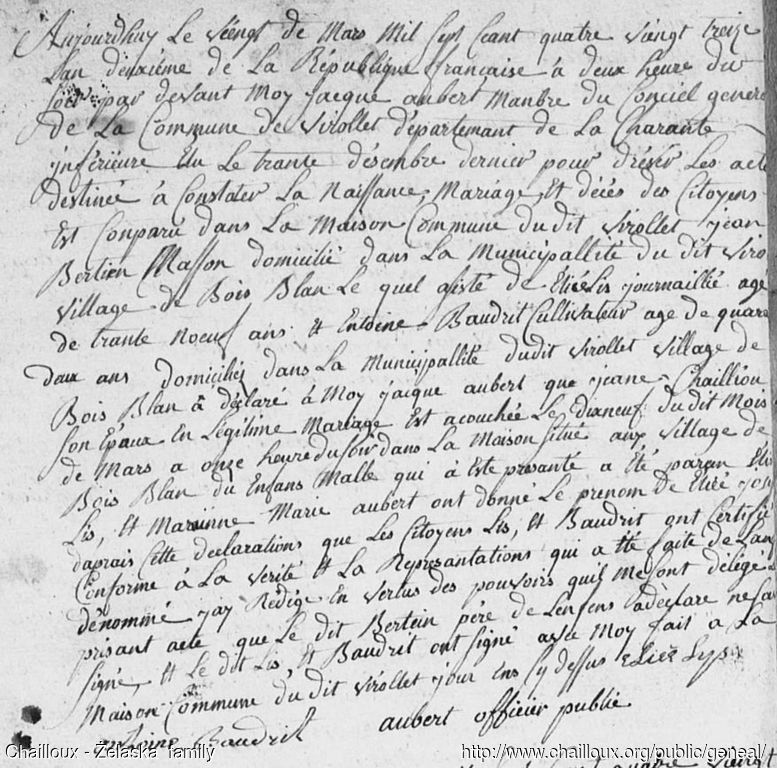 Aujourdhuy Le Vëingt de Mars Mil Sept Ceant quatre Vaingt treize
Lan deuxiême de La République française à deux heure du
soir par devant Moy jacque aubert Manbre du Conciel genera
de La Commune de Virollet départemant de La Charante
jnférieure Elu Le trante désembre dernier pour dréser Les acte
destinée à Constater La Naissance, Mariage, Et décés des Citoyens
Est Conparu dans La Maison Commune dudit Virollet jean
Bertien Masson domicilié dans La Municipallité du dit Viro
Village de Bois Blan Le quel asisté de Eliée Lis journaillié agé
de trante Noeuf ans Et Entoine Baudrit Cultivateur age de quara
deux ans domiciliés dans La Municipallité dudit Virollet Village de
Bois Blan à déclaré à Moy jaique aubert que jeane Chaillou
son Epaux En Légitime Mariage Est acouchée Le dixneuf dudit Mois
de Mars a onze heure du soir dans La Maison situé aux Village de
Bois Blan du Enfans Malle qui à Este presanté a Eté parun Elié
Lis, Et Marianne Marie aubert ont donné Le prenom de Elié
daprais Cette declarations que Les Citoyens Lis, Et Baudrit ont Certifié
Conforme à La Verité Et La Représantations qui a Eté faite de Lanf
dénommé jay Rédigé En Vertus des pouvoirs quil Me sont délégé
prisant acte que Le dit Bertein père de Lenfens adéclare ne sa
signé, Et Le dit Lis, Et Baudrit ont signé avec Moy fait a La
Maison Commune dudit Virollet jour Ens Cy dessus Eliee Lys
entoine Baudrit aubert officier publie
Chailloux - Zelaska family http://www.chailloux.org/public/geneal/